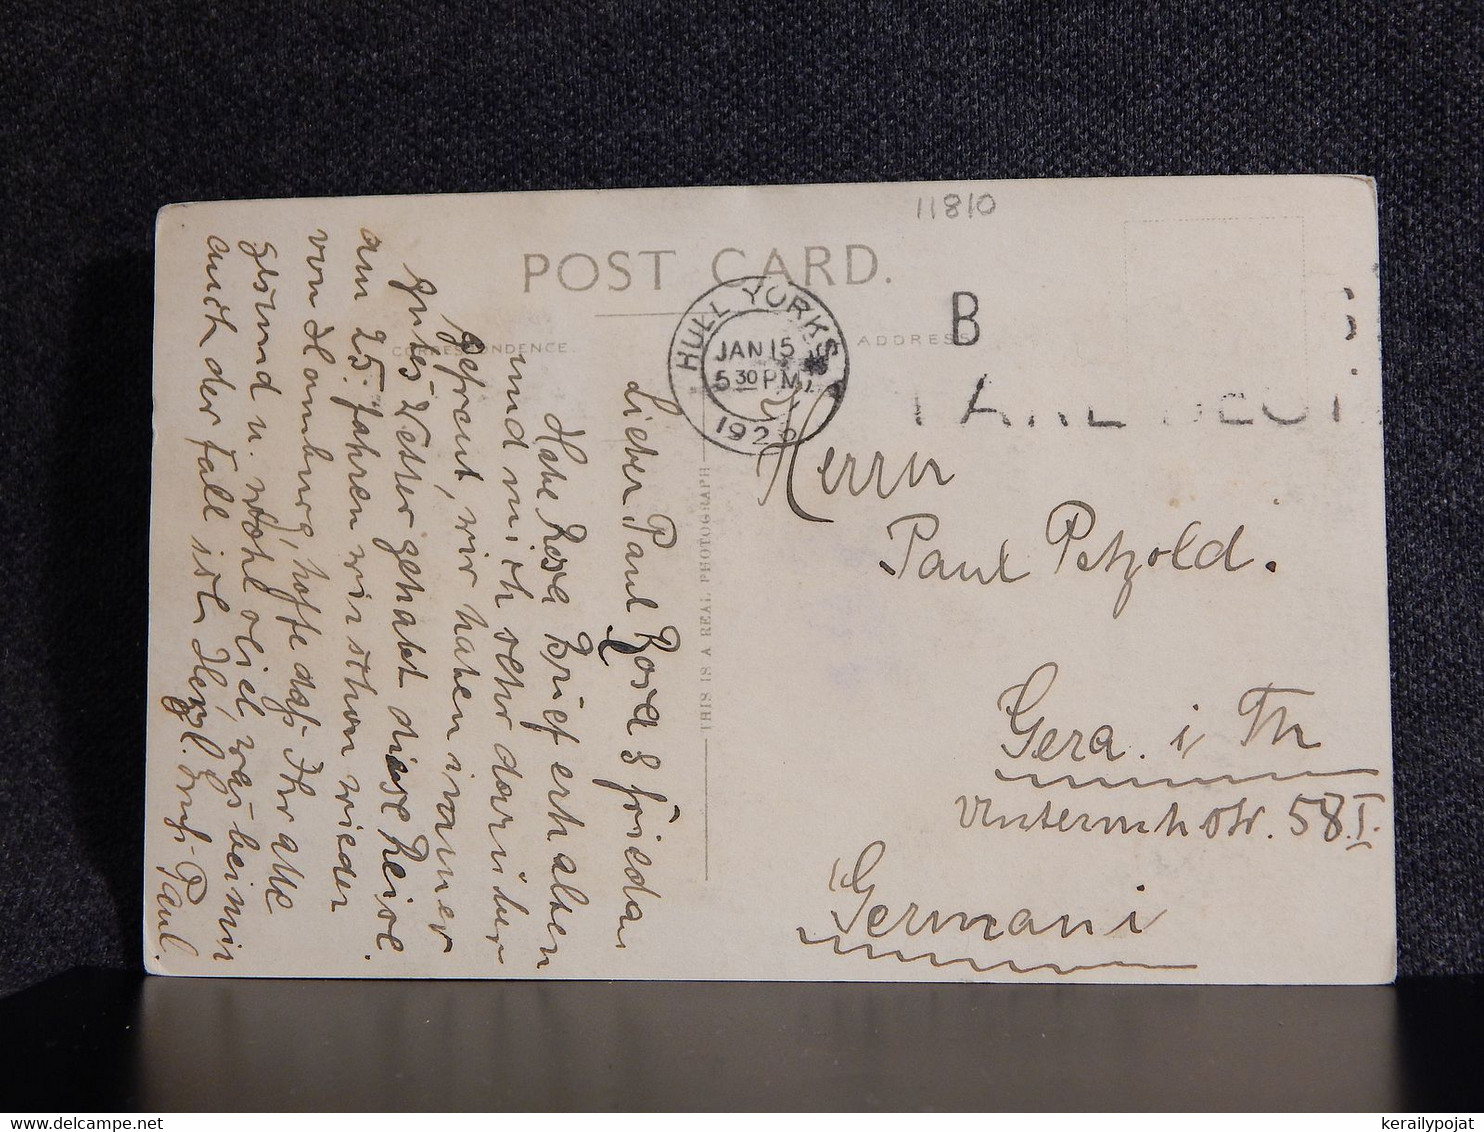 11810
POST CARD.
CORRESPONDENCE
ADDRESS
HULL YORKS
JAN 15
5 30 PM
192
B
THIS IS A REAL PHOTOGRAPH
Lieber Paul Rosa & Frieda
Habe Rosa Brief erhalten
und mich sehr darüber
gefreut, wir haben immer
gutes Wetter gehabt diese Reise.
am 25. fahren wir schon wieder
von Hamburg, hoffe daß Ihr alle
gesund u. wohl seid, was bei mir
auch der Fall ist. Herzl. Gruß Paul.
Herrn
Paul Petzold.
Gera. i Th
str. 58 I.
Germani
kerailypojat